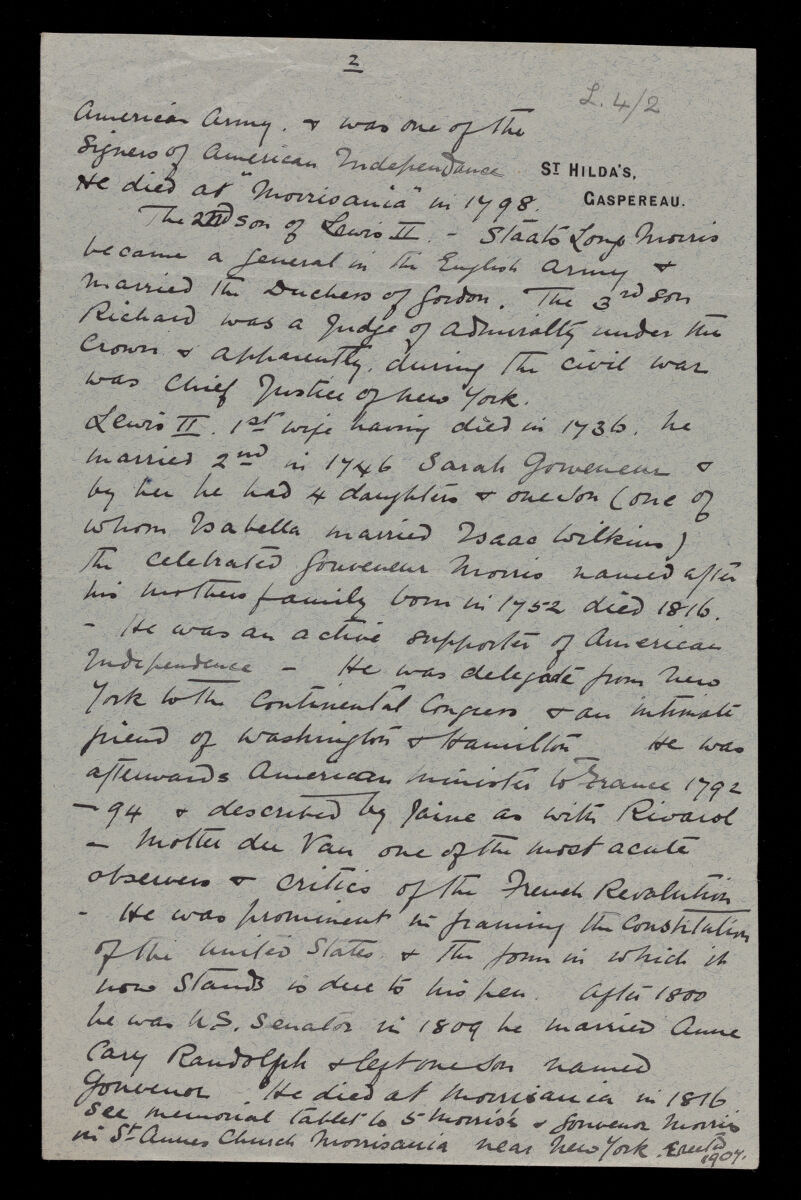 2
L. 4/2
American Army. & was one of the
Signers of American Independence
ST HILDA'S,
GASPEREAU.
He died at "Morrisania" in 1798.
The 2nd son of Lewis II. - Staats Long Morris
became a general in the English Army &
married the Duchess of Gordon. The 3rd son
Richard was a Judge of Admiralty under the
Crown & apparently, during the civil war
was Chief Justice of New York.
Lewis II. 1st wife having died in 1736. he
married 2nd in 1746 Sarah Gouveneur &
by her he had 4 daughters & one son (one of
whom Isabella married Isaac Wilkins)
the celebrated Gouveneur Morris named after
his mothers family born in 1752 died 1816.
- He was an active supporter of American
Independence - He was delegate from New
York to the Continental Congress & an intimate
friend of Washington & Hamilton He was
afterwards American Minister to France 1792
- 94 & described by Taine as with Rivarol
- Mallet du Pan one of the most acute
observers & critics of the French Revolution
- He was prominent in framing the Constitution
of the United States & the form in which it
now Stands is due to his pen. After 1800
he was U.S. Senator in 1809 he married Anne
Cary Randolph & left one Son named
Gouvenor. He died at Morrisania in 1816
See memorial tablet to 5 Morris's & Gouvenor Morris
in St. Annes Church Morrisania near New York. Erected
1907.